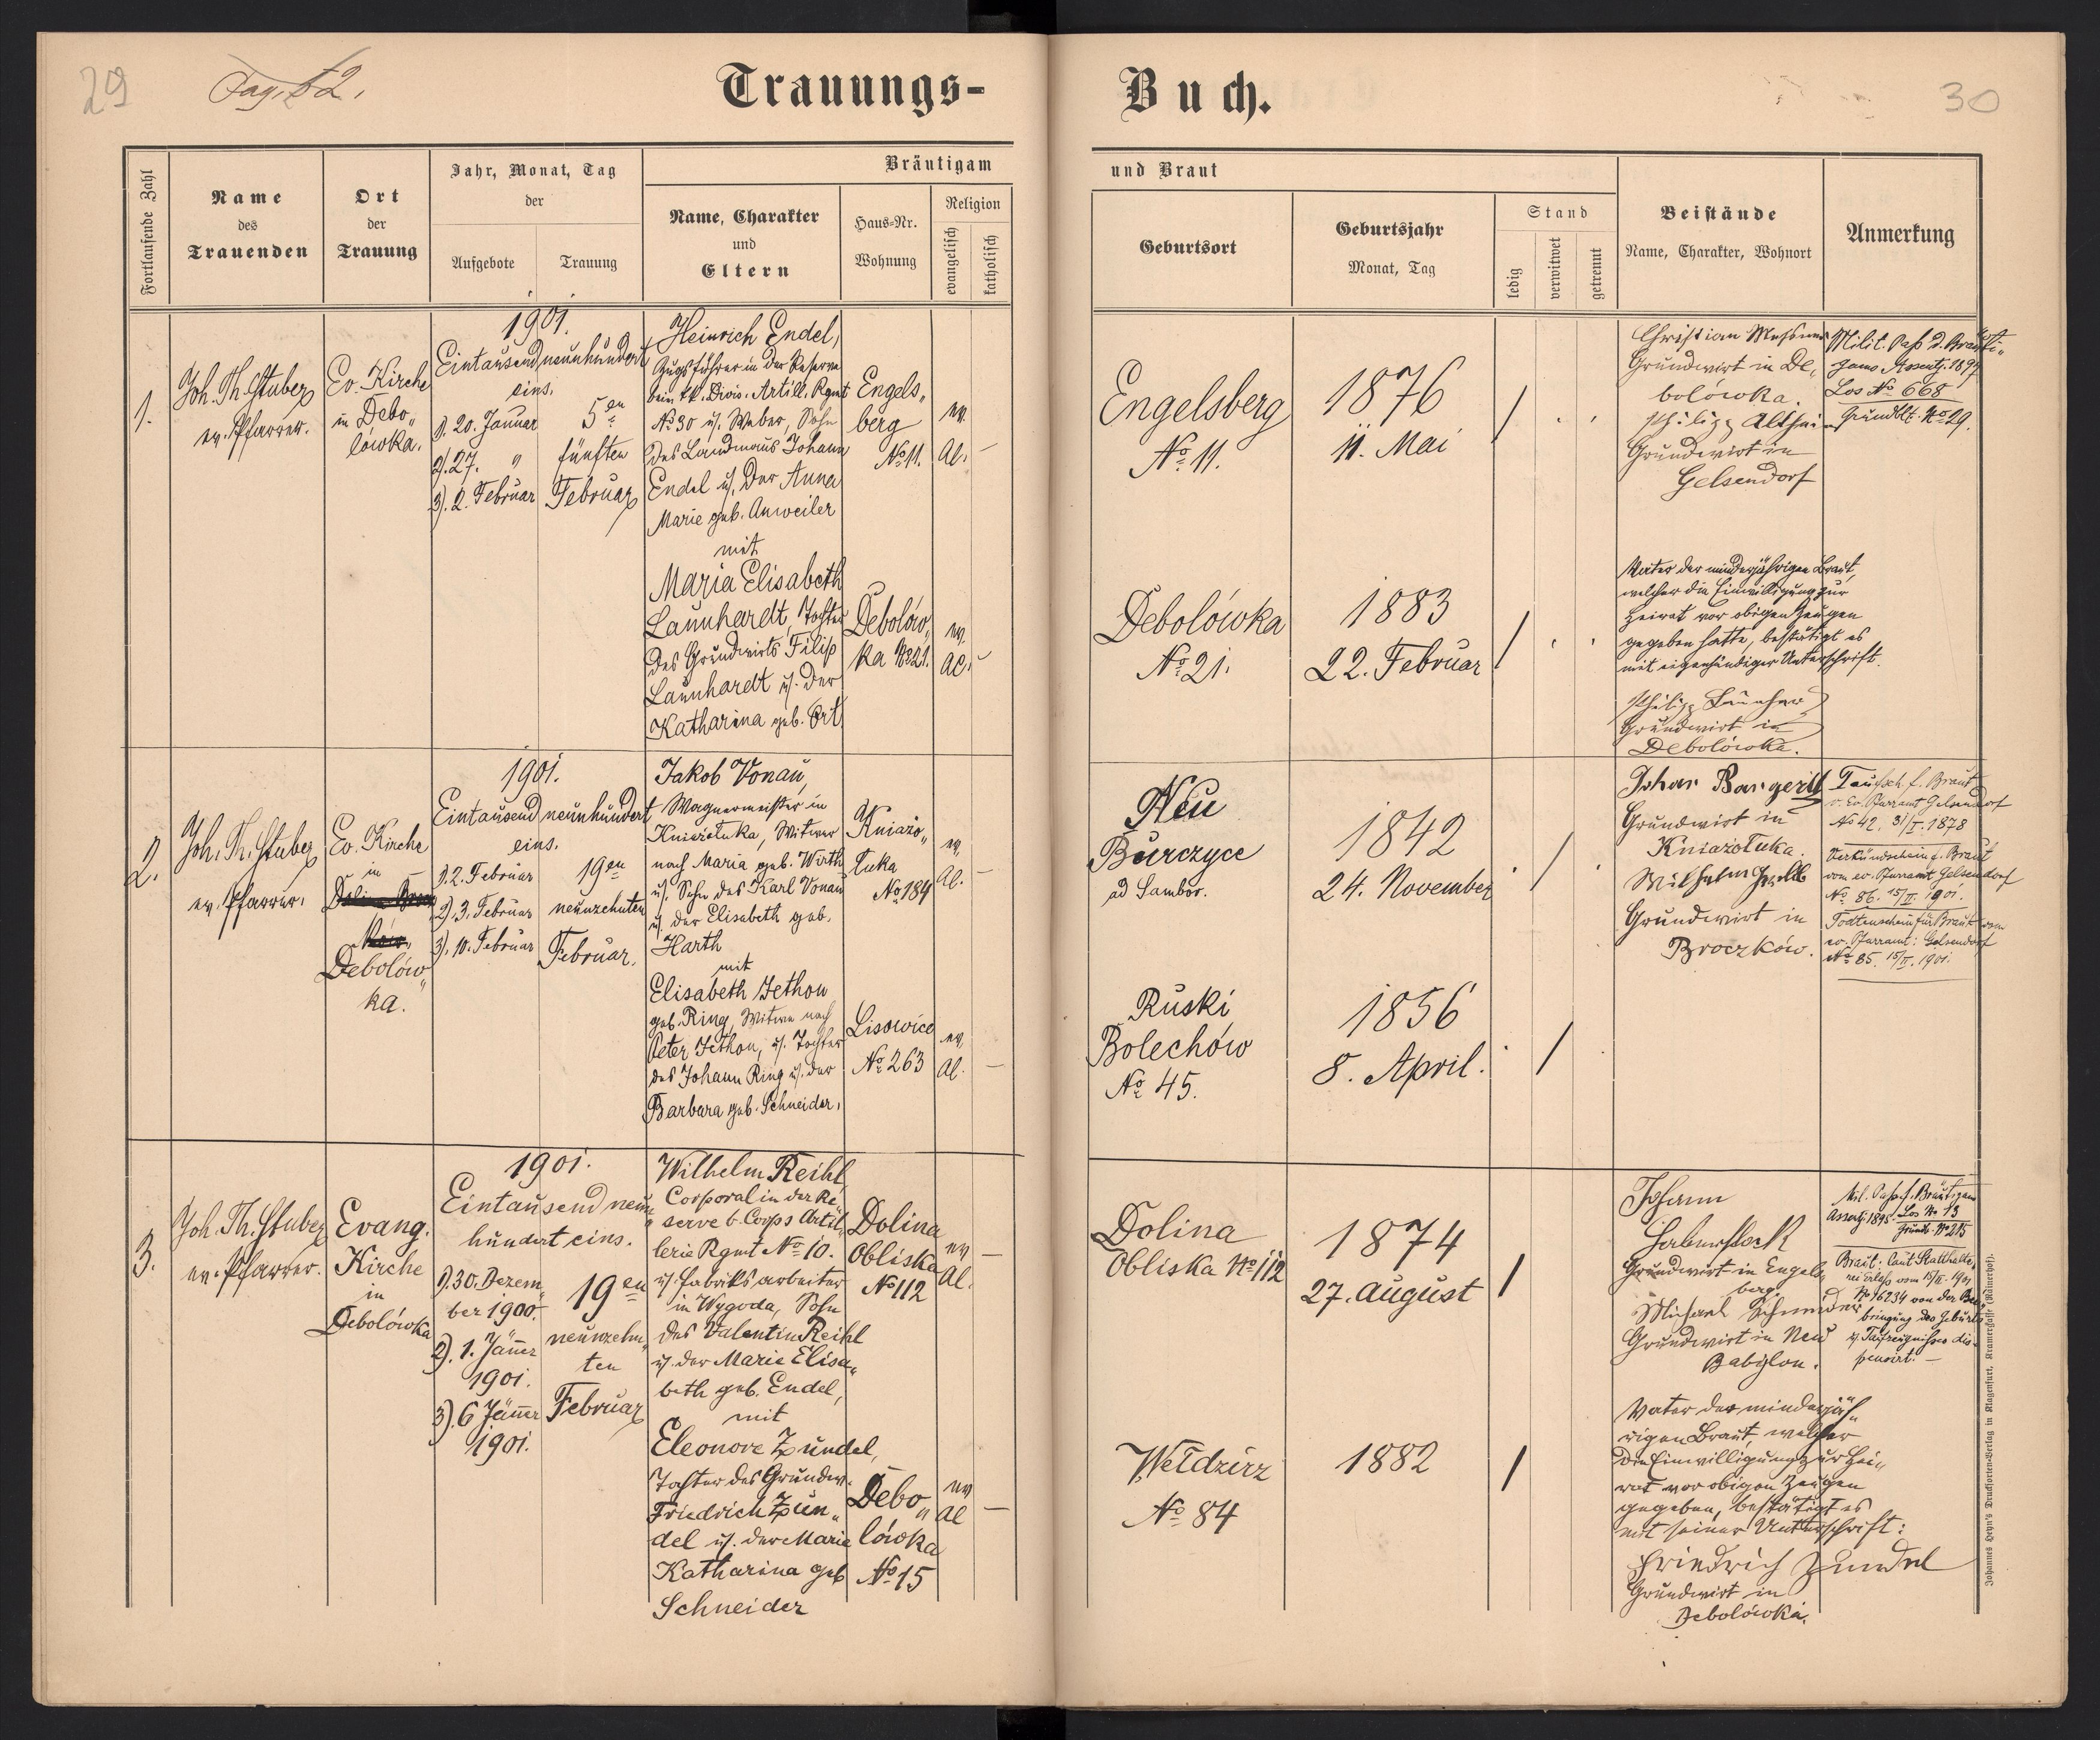 29
Pag. 62.
Trauungs-
Fortlaufende Zahl
Name
des
Trauenden
Ort
der
Trauung
Jahr, Monat, Tag
der
Aufgebote
Trauung
Bräutigam
Name, Charakter
und
Eltern
Haus-Nr.
Wohnung
Religion
evangelisch
katholisch
1.
Joh. Th. Stuber
ev. Pfarrer.
Ev. Kirche
in Debo„
lówka.
1901.
Eintausendneunhundert
eins.
1). 20. Januar
2). 27. "
3). 2. Februar
5en
fünften
Februar
Heinrich Endel,
Zugsführer in der Reserve
beim k.k. Divis. Artill. Rgmt
No 30 u. Weber, Sohn
des Landmanns Johann
Endel u. der Anna
Marie geb. Anweiler
mit
Maria Elisabeth
Launhardt, Tochter
des Grundwirts Filip
Launhardt u. der
Katharina geb. Ort
Engels„
berg
No 11.
ev.
Al.
–
Debolów„
ka No 21.
ev.
Al.
–
2.
Joh. Th. Stuber
ev. Pfarrer.
Ev. Kirche
in
Debolów„
ka.
1901.
Eintausend neunhundert
eins.
1). 2. Februar
2). 3. Februar
3). 10. Februar
19en
neunzehnten
Februar.
Jakob Vonau,
Wagnermeister in
Kniazoluka, Witwer
nach Maria geb. Wirth
u. Sohn des Karl Vonau
u. der Elisabeth geb.
Harth
mit
Elisabeth Jethon
geb. Ring, Witwe nach
Peter Jethon, u. Tochter
des Johann Ring u. der
Barbara geb. Schneider.
Kniazo„
łuka
No 184
ev.
Al.
–
Lisowice
No 263
ev.
Al.
–
3.
Joh. Th. Stuber
ev. Pfarrer.
Evang.
Kirche
in
Debolówka
1901.
Eintausend neun„
hundert eins.
1). 30. Dezem„
ber 1900.
2). 1. Jänner
1901.
3). 6 Jänner
1901.
19en
neunzehn„
ten
Februar
Wilhelm Reihl,
Corporal in der Re„
serve b. Corps Artil„
lerie Rgmt No 10.
u. Fabriksarbeiter
in Wygoda, Sohn
des Valentin Reihl
u. der Marie Elisa„
beth geb. Endel,
mit
Eleonore Zündel,
Tochter des Grundw.
Friedrich Zün„
del u. der Marie
Katharina geb
Schneider
Dolina
Obliska
No 112
ev
Al.
–
Debo„
lówka
No 15
ev
Al
–
Buch.
30
und Braut
Geburtsort
Geburtsjahr
Monat, Tag
Stand
ledig
verwitwet
getrennt
Beistände
Name, Charakter, Wohnort
Anmerkung
Engelsberg
No 11.
1876
11. Mai
/
Christian
Grundwirt in De„
bolówka.
Philipp
Grundwirt in
Gelsendorf
Milit. Paß d. Bräuti„
gams Assentj. 1897
Los No 668
Grundblt. No 29.
Debolówka
No 21.
1883
22. Februar
/
Vater der minderjährigen Braut,
welcher die Einwilligung zur
Heirat vor obigen Zeugen
gegeben hatte, bestätigt es
mit eigenhändiger Unterschrift.
Philipp
Grundwirt in
Debolówka.
Neu
Burczyce
ad Sambor.
1842
24. November
/
Johan Bangerth
Grundwirt in
Kniazołuka.
Wilhelm
Grundwirt in
Broczków.
Taufsch. f. Braut
v. Ev. Pfarramt Gelsendorf
No 42. 31/I. 1878
Verkündschein f. Braut
vom ev. Pfarramt Gelsendorf
No 86. 15/II. 1901.
Todtenschein für Braut vom
ev. Pfarramt: Gelsendorf
No 85. 15/II. 1901.
Ruski
Bolechów
No 45.
1856
8. April.
/
Dolina
Obliska No 112
1874
27. August
/
Johann
Haberstock
Grundwirt in Engels„
berg.
Michael Schneider
Grundwirt in Neu
Babylon.
Mil. Paß f. Bräutigam
Assentj. 1895 Los No 13
Grundb. No 215
Braut: laut Statthalte„
rei Erlaß vom 15/II. 1901
No 16234 von der Bei„
bringung des Geburts
u. Taufzeugnisses dis„
pensirt. –
Wełdzirz
No 84
1882
/
Vater der minderjäh„
rigen Braut, welcher
die Einwilligung zur Hei„
rat vor obigen Zeugen
gegeben, bestätigt es
mit seiner Unterschrift:
Friedrich Zundel
Grundwirt in
Debolówka.
Johannes Heyn's Drucksorten-Verlag in Klagenfurt, Kramergasse (Mainerhof).